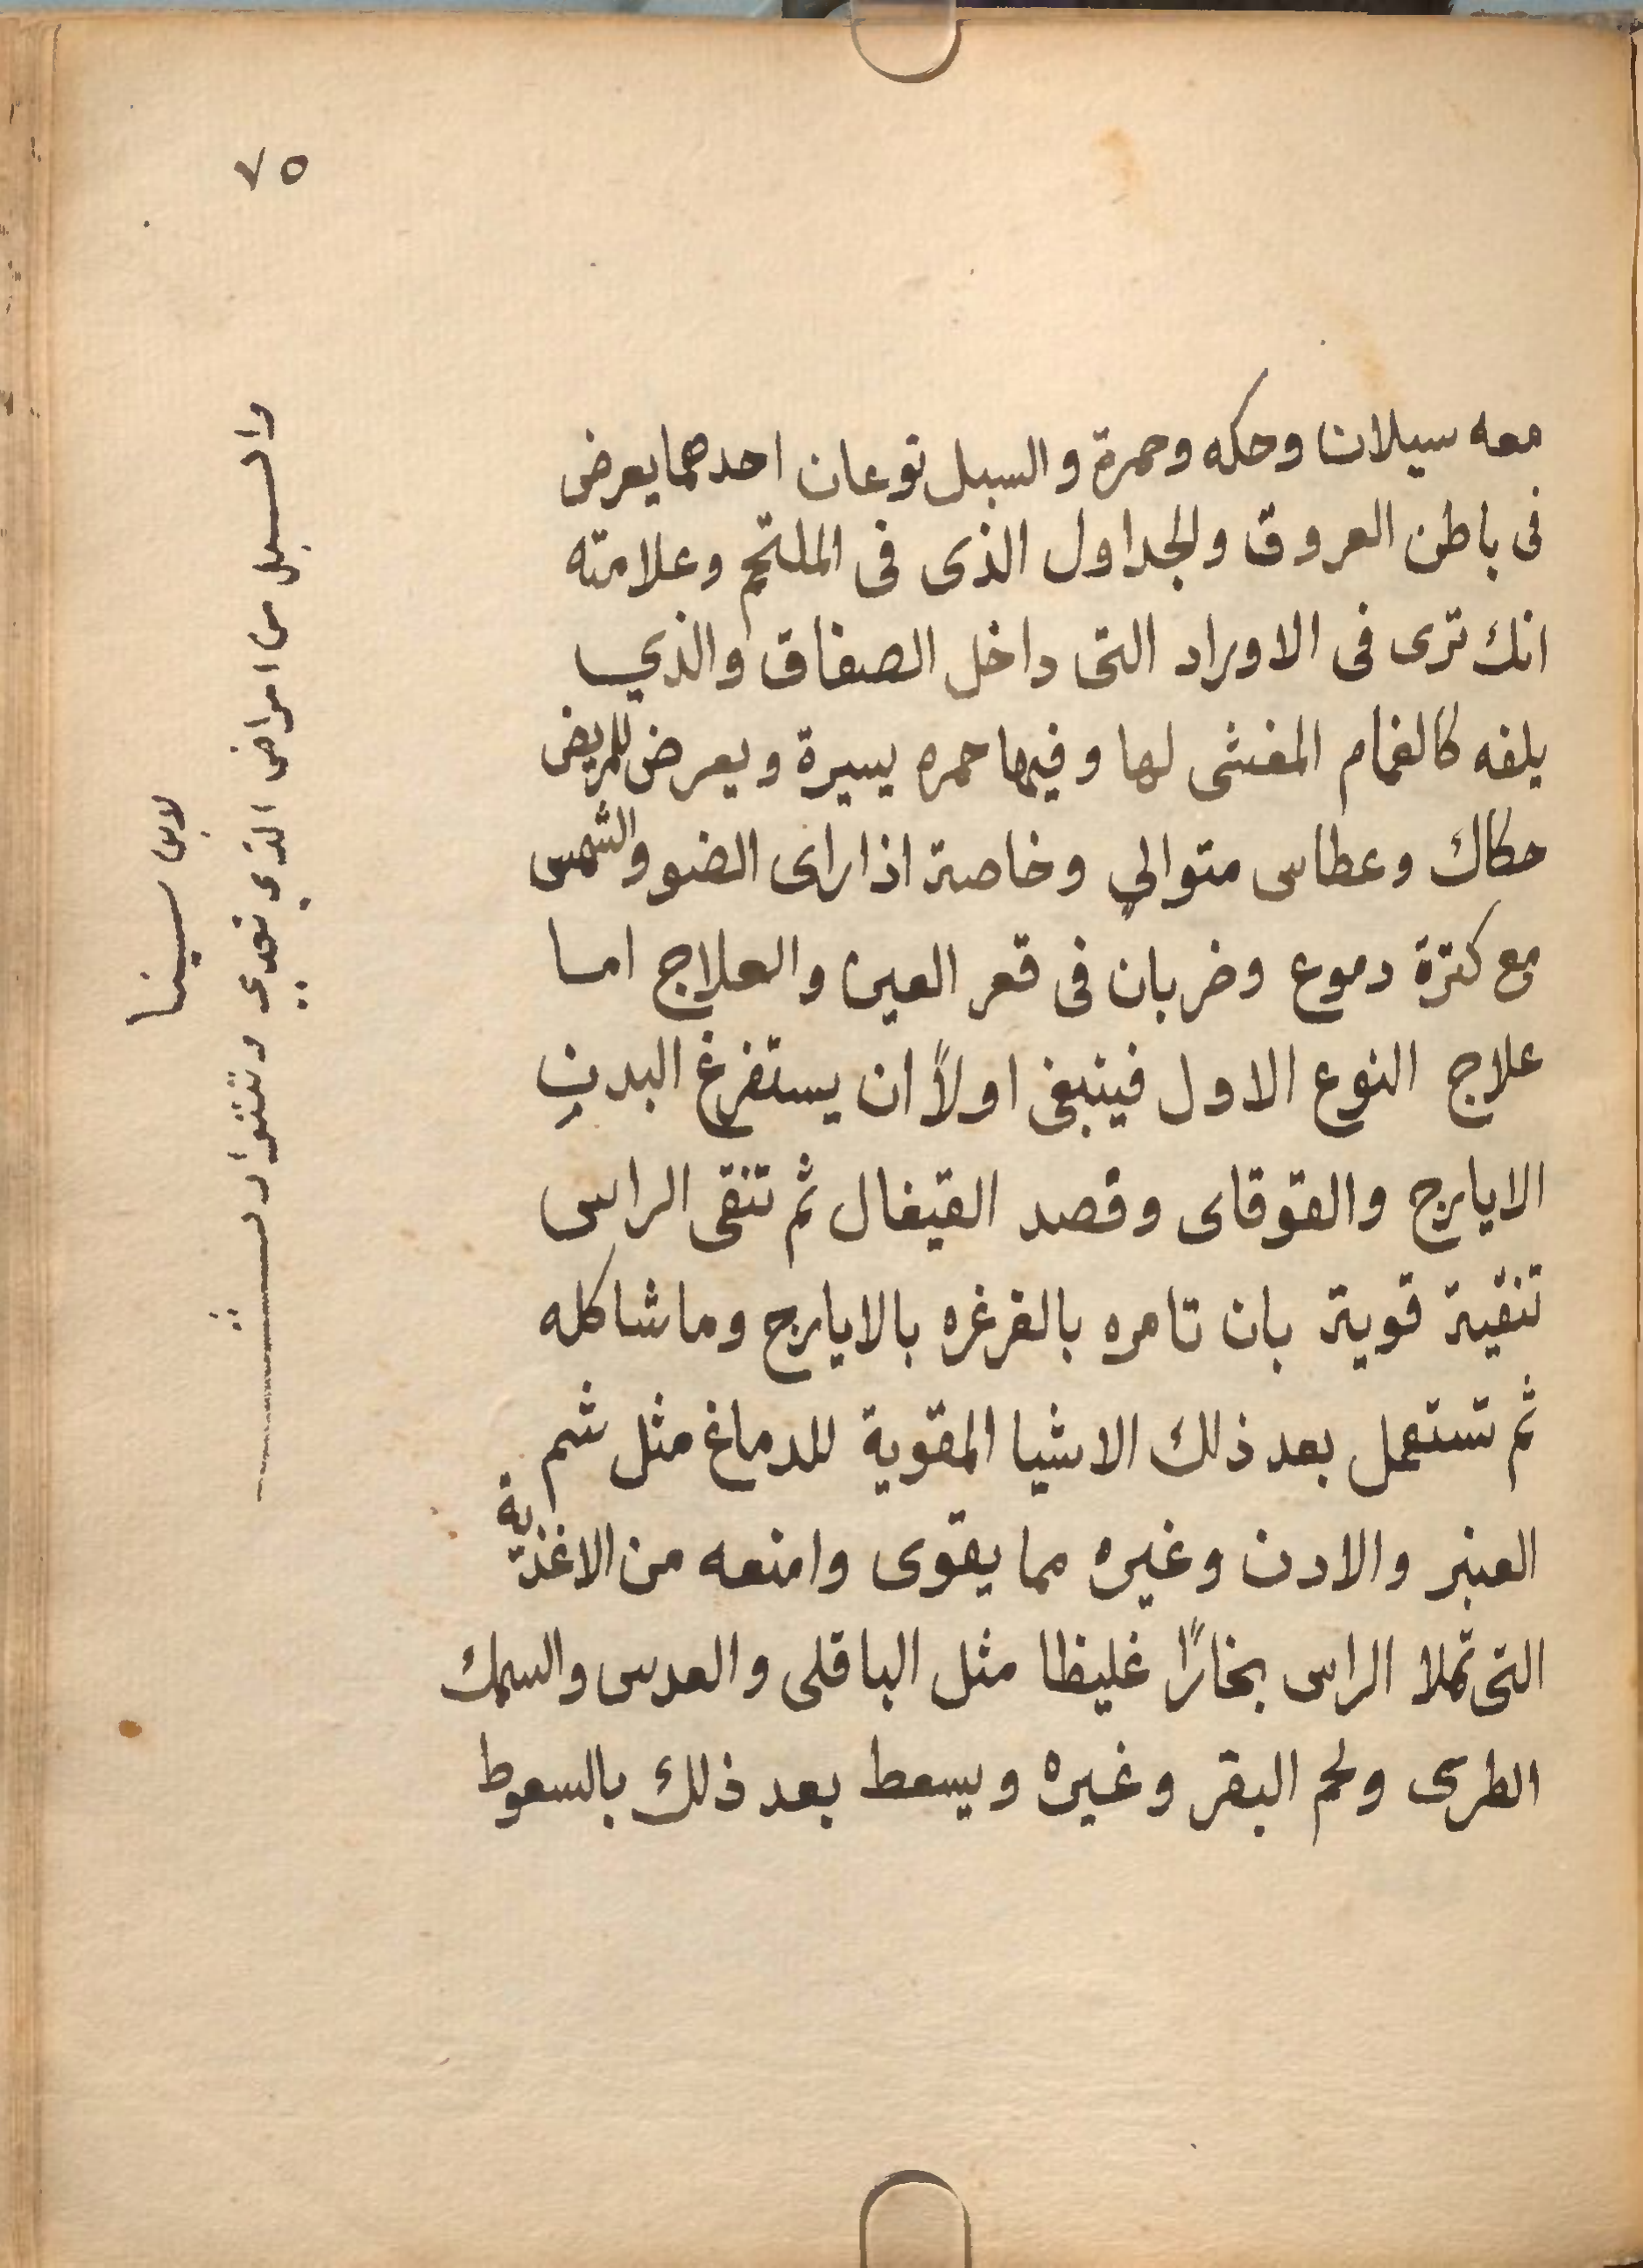 ٧٥
معه سيلان وحكه وحمرة والسبل نوعان احدهما يعرض
فى باطن العروق والجداول الذى فى الملتحم وعلامته
انك ترى فى الاوراد التى داخل الصفاق والذي
يلفه كالغمام المغشى لها وفيها حمره يسيرة ويعرض للمريض
حكاك وعطاس متوالي وخاصة اذا راى الضو والشمس
مع كثرة دموع وضربان فى قعر العين والعلاج اما
علاج النوع الاول فينبغى اولاً ان يستفرغ البدن
الايارج والقوقاى وفصد القيفال ثم تنقى الراس
تنقية قوية بان تامره بالغرغره بالايارج وما شاكله
ثم تستعمل بعد ذلك الاشيا المقوية للدماغ مثل شم
العنبر والادن وغيره مما يقوى وامنعه من الاغذية
التى تملا الراس بخارًا غليظا مثل الباقلى والعدس والسمك
الطرى ولحم البقر وغيره ويسعط بعد ذلك بالسعوط
والسبل من امراض الذي تعدي وتتوارث
لابن سينا